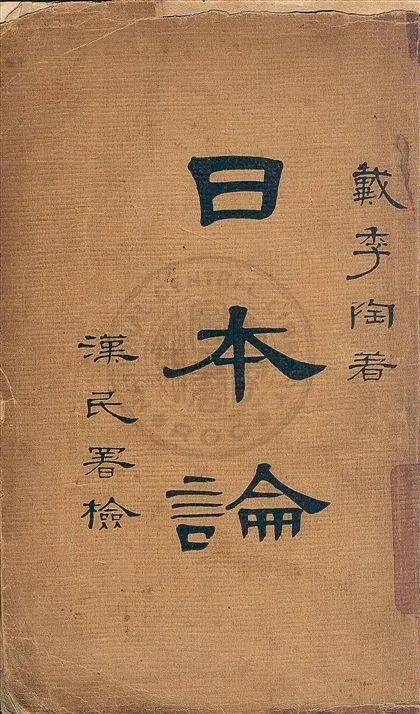 戴季陶著
日本論
漢民署檢